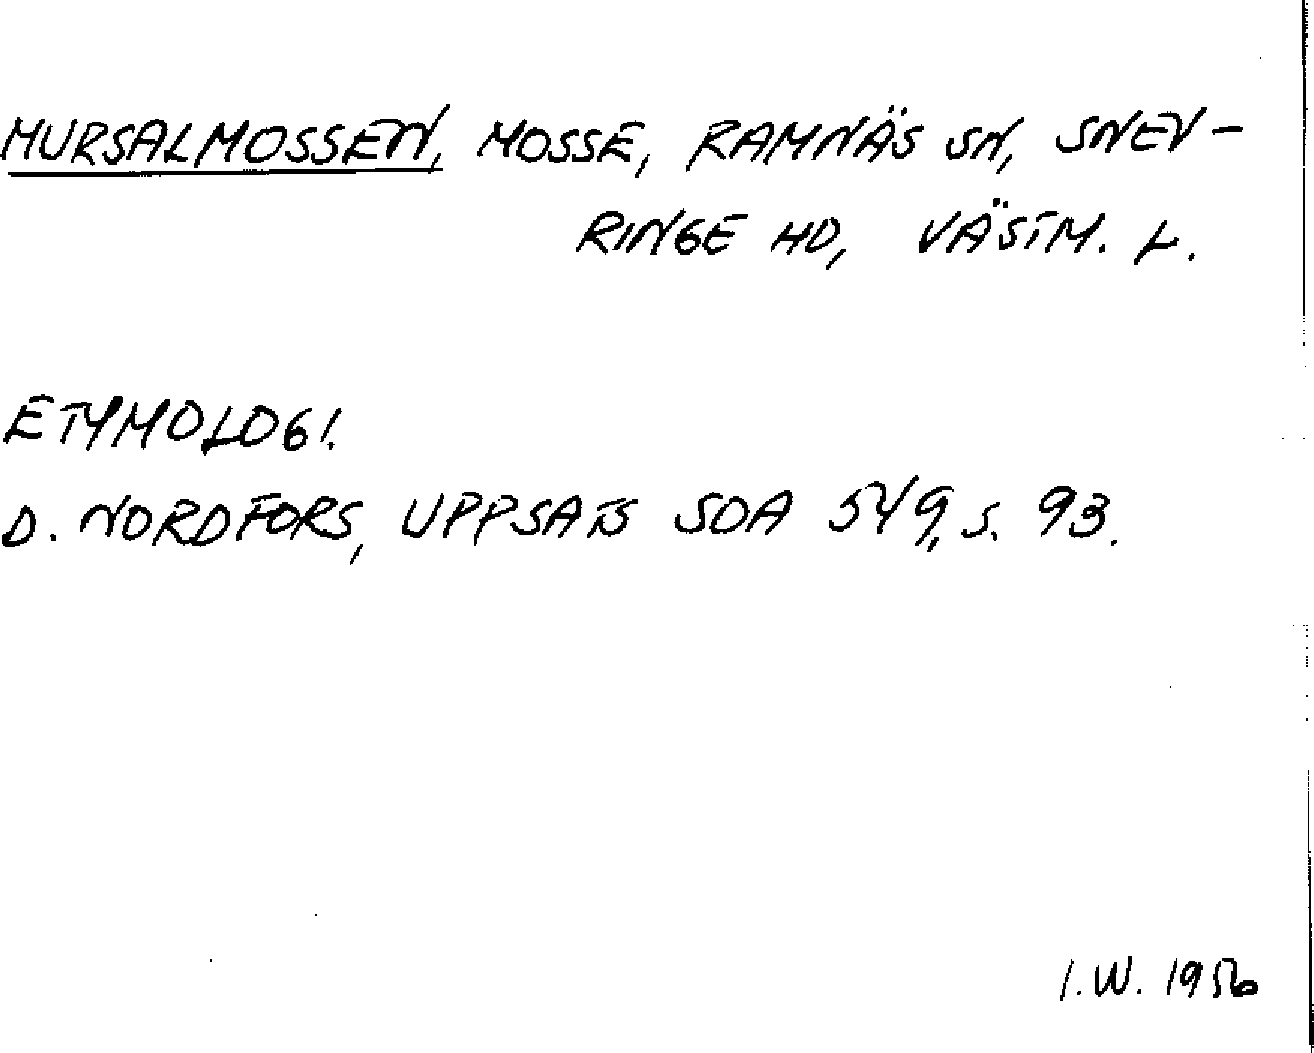 MURSALMOSSEN, MOSSE, RAMNÄS SN, SNEV-
RINGE HD, VÄSTM. L.
ETYMOLOGI.
D. NORDFORS, UPPSATS SOA 549, S. 93.
I.W. 1956